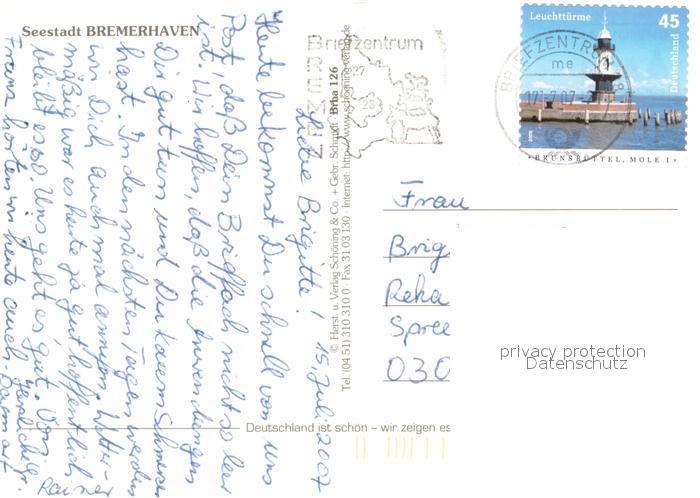 Seestadt BREMERHAVEN
Leuchttürme 45
Deutschland
BRUNSBÜTTEL, MOLE 1
BRIEFZENTRUM
Briefzentrum
27
28
BREMEN
Brha 126
© Herst. u. Verlag Schöning & Co. + Gebr. Schmidt
Tel. (04 51) 310 310 0 · Fax 31 03 130 · Internet: http://www.schoening-verlag.de
15. Juli 2007
Liebe Brigitte!
Heute bekommst Du schnell von uns
Post, daß Dein Brieffach nicht so leer
ist. Wir hoffen, daß die Anwendungen
Dir gut tun und Du kaum Schmerzen
hast. In den nächsten Tagen werden
wir Dich auch mal anrufen. Wetter-
mäßig war es heute ja gut, hoffentlich
bleibt es so. Uns geht es gut. Von
hörten wir heute auch.
Herzliche
Rainer
Frau
Brig
Reha
Spree
030
Deutschland ist schön – wir zeigen es
privacy protection
Datenschutz